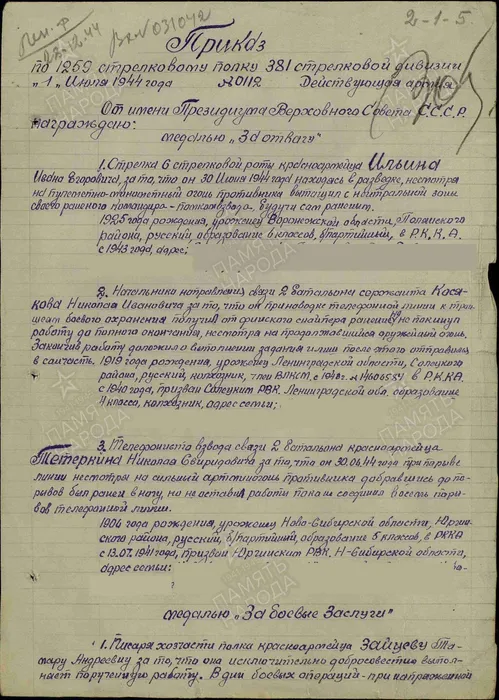 Вх. №031042
2-1-5.
23.12.44
Приказ
по 1259 стрелковому полку 381 стрелковой дивизии
"1" Июля 1944 года №0112 Действующая армия
От имени Президиума Верховного Совета С.С.С.Р.
награждаю:
медалью „За отвагу"
1. Стрелка 6 стрелковой роты красноармейца Ильина
Ивана Егоровича, за то, что он 30 Июня 1944 года находясь в разведке, несмотря
на пулеметно-минометный огонь противника вытащил с нейтральной зоны
своего раненого командира-помкомвзвода будучи сам раненым.
1925 года рождения, урожему Воронежской области,
района, русский, образование 6 классов, б/партийный, в Р.К.К.А.
с 1943 года, адрес;
2. Начальника направления связи 2 батальона сержанта Кося-
кова Николая Ивановича за то, что он при наводке телефонной линии к тран-
шеям боевого охранения получил от финского снайпера ранение но не покинул
работу до полного окончания, несмотря на продолжавшийся оружейный огонь.
Закончив работу доложил о выполнении задания и лиш после этого отправился
в санчасть. 1919 года рождения, урожему Ленинградской области, Солецкого
района, русский, колхозник, член ВЛКСМ, с 1940 г. №14606551 в Р.К.К.А
с 1940 года, призван Солецким РВК. Ленинградской обл. образование
4 класса, колхозник, адрес семьи;
3. Телефониста взвода связи 2 батальона красноармейца
Тетеркина Николая Свиридовича за то, что он 30.06.44 года при порыве
линии несмотря на сильный артминогонь противника добравшись до по-
рывов был ранен в ногу, но не оставил работы пока не соединил восемь поры-
вов телефонной линии.
1906 года рождения, урожему Ново-Сибирской области, Юргин-
ского района, русский, б/партийный, образование 5 классов, в РККА
с 13.07.1941 года, призван Юргинским РВК. Н-Сибирской области,
адрес семьи:
медалью „За боевые Заслуги"
1. Писаря хозчасти полка красноармейца Зайцеву Та-
мару Андреевну за то, что она исключительно добросовестно выпол-
няет порученную работу. В дни боевых операций - при напряженной
ПАМЯТЬ НАРОДА